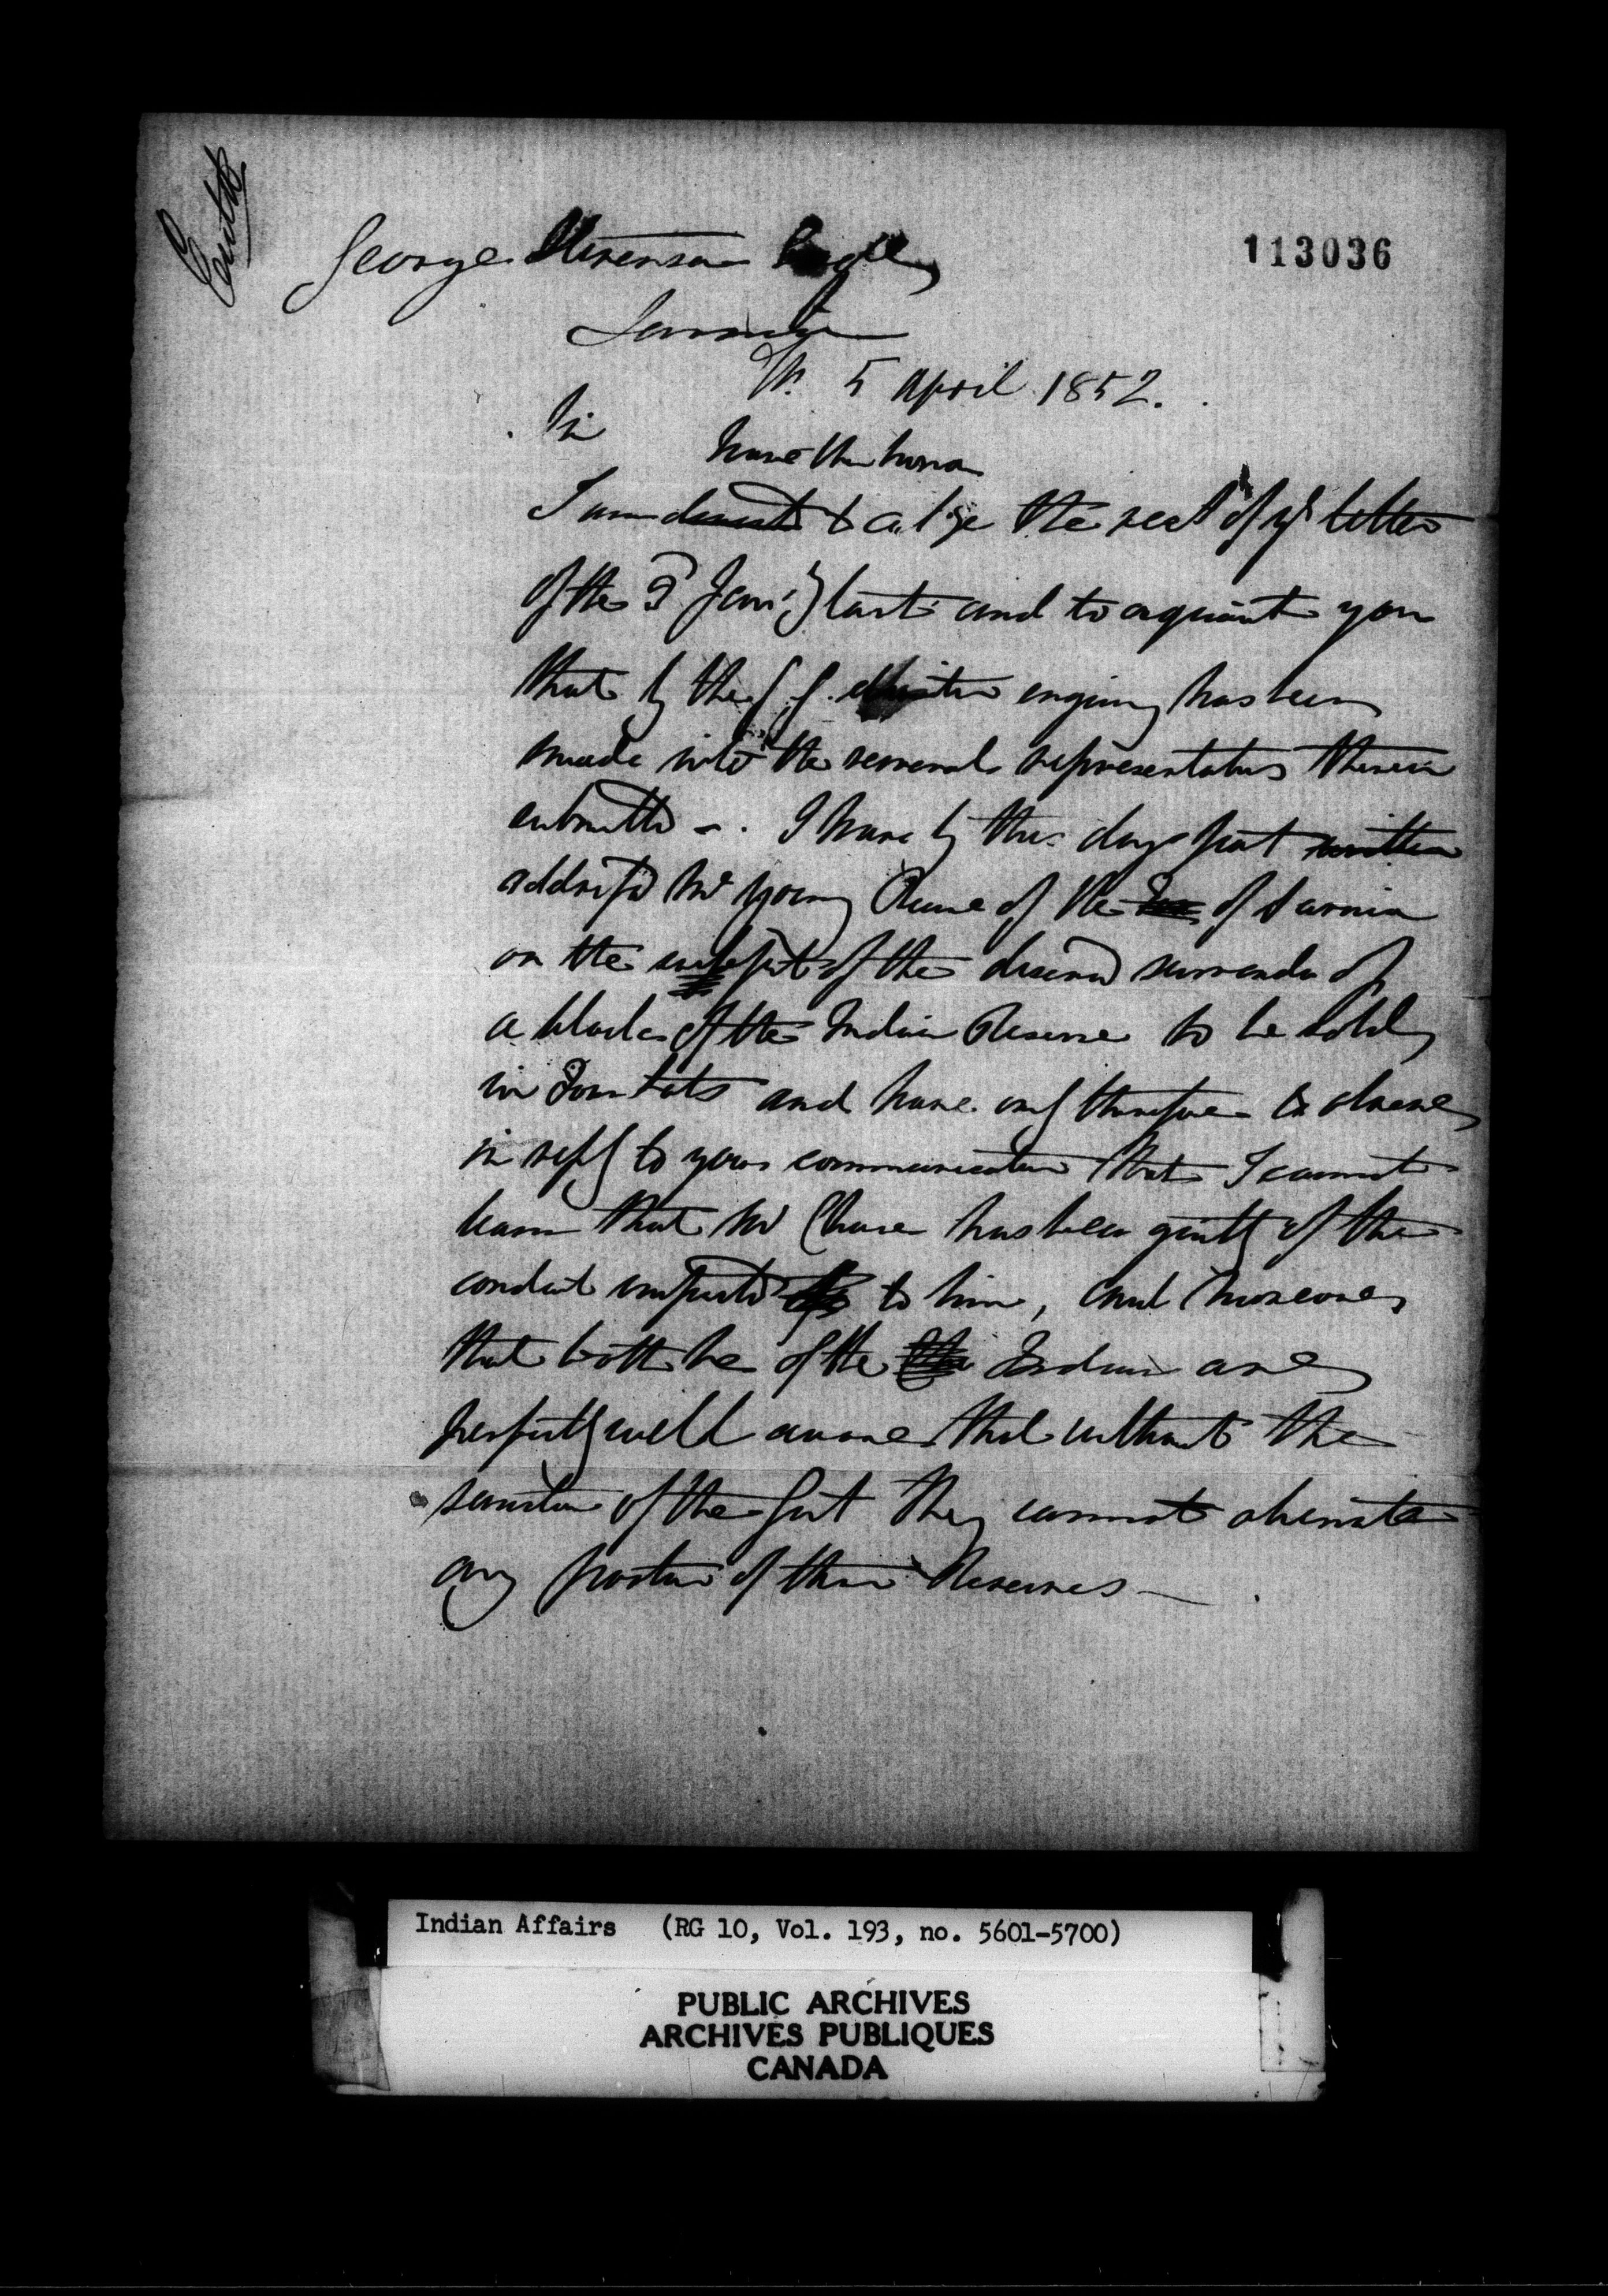 Entd
113036
George Stevenson Esqre
Sarnia
5 April 1852.
Sir
have the honor
I am to the rect of yr letter
of the 3d Jany last and to acquaint you
that by the G. G. enquiry has been
made into the several representations therein
submitted -. I have by this days post written
address'd Mr Young Reeve of the Tow of Sarnia
on the subject of the desired surrender of
a block of the Indian Reserve to be sold
in Town Lots and have only therefore to observe
in reply to your communication that I cannot
learn that Mr Chase has been guilty of the
conduct imputed to him, and moreover
that both he the Indians are
perfectly well aware that without the
sanction of the Govt they cannot alienate
any portion of their Reserves -
Indian Affairs (RG 10, Vol. 193, no. 5601-5700)
PUBLIC ARCHIVES
ARCHIVES PUBLIQUES
CANADA